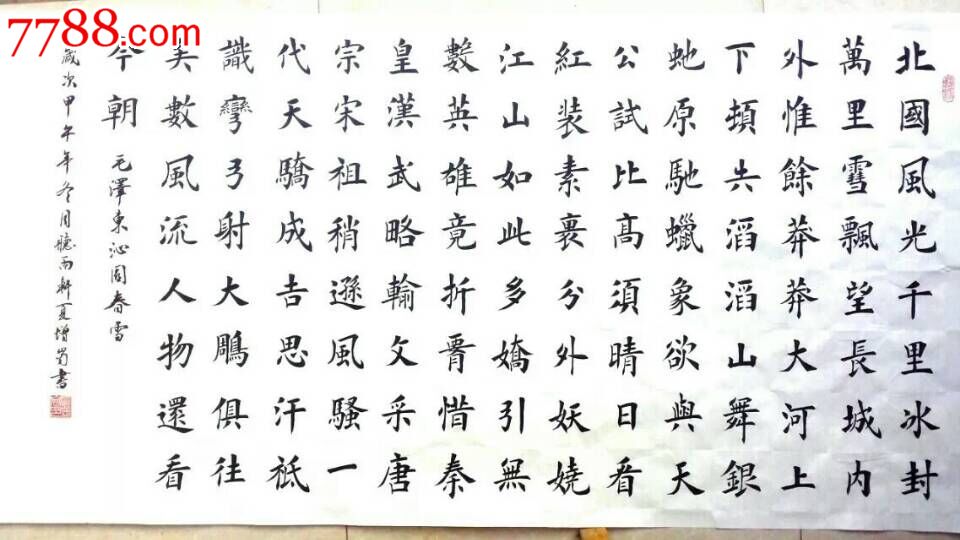 7788.com
北國風光千里冰封
萬里雪飄望長城内
外惟餘莽莽大河上
下頓失滔滔山舞銀
虵原馳蠟象欲與天
公試比高須晴日看
紅裝素裹分外妖娆
江山如此多嬌引無
數英雄竟折腰惜秦
皇漢武略輸文采唐
宗宋祖稍遜風騷一
代天驕成吉思汗衹
識彎弓射大鵰俱往
矣數風流人物還看
今朝 毛澤東沁園春雪
歲次甲午年冬月聽雨軒夏增蜀書